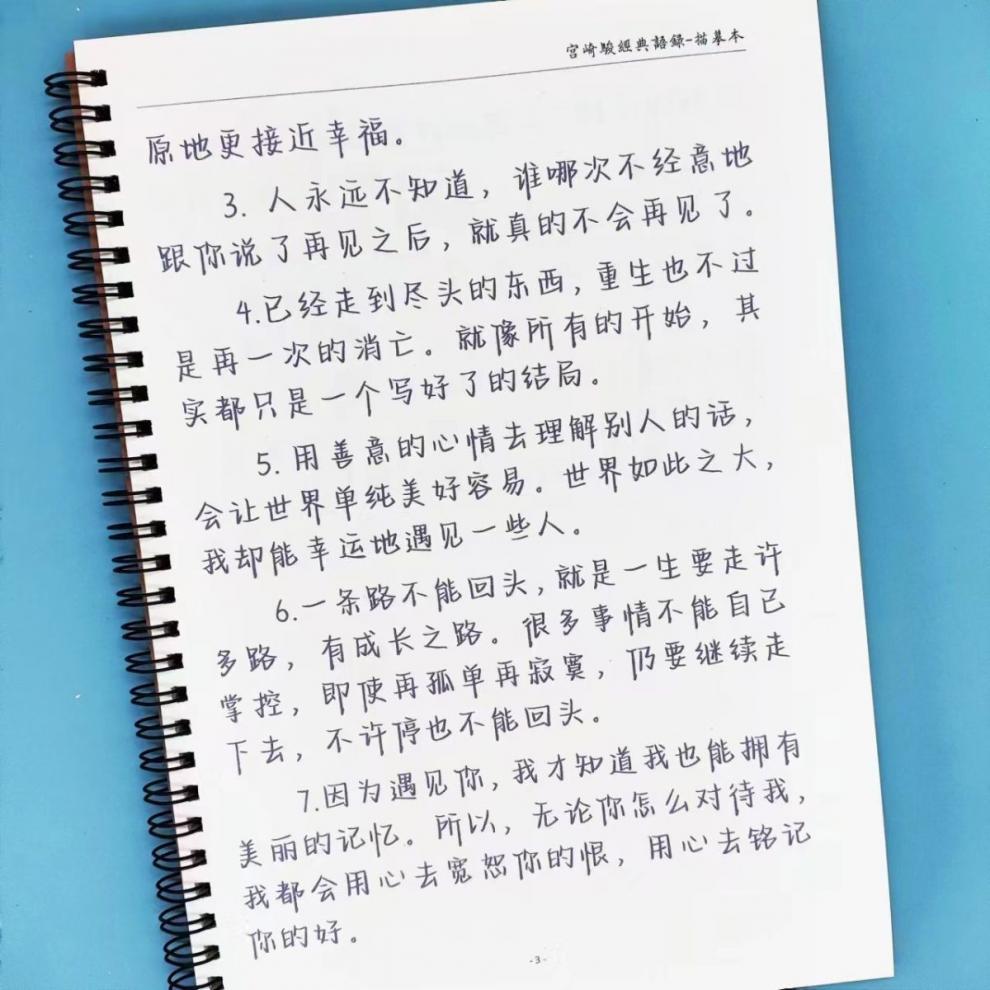 宫崎駿經典語録-描摹本
原地更接近幸福。
3. 人永远不知道，谁哪次不经意地
跟你说了再见之后，就真的不会再见了。
4.已经走到尽头的东西，重生也不过
是再一次的消亡。就像所有的开始，其
实都只是一个写好了的结局。
5. 用善意的心情去理解别人的话，
会让世界单纯美好容易。世界如此之大，
我却能幸运地遇见一些人。
6.一条路不能回头，就是一生要走许
多路，有成长之路。很多事情不能自己
掌控，即使再孤单再寂寞，仍要继续走
下去，不许停也不能回头。
7.因为遇见你，我才知道我也能拥有
美丽的记忆。所以，无论你怎么对待我，
我都会用心去宽恕你的恨，用心去铭记
你的好。
-3-